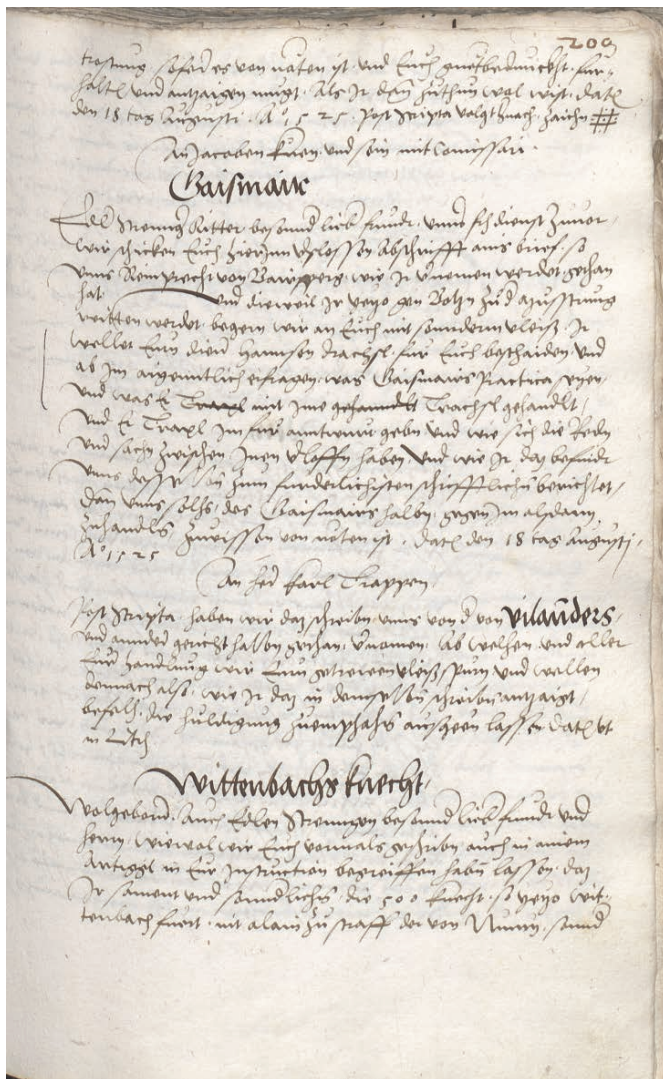 209
trostung, sofer es von nöten ist und Euch guetbedunckht, fur-
halten und antzaigen mügt. Als Ir dann zuthun wol wist. Datum
den 18 tag Augusti. Aº 1525. Post Scripta volgt hernach. Zaichn #
An Jacoben Kuen und sein mit Comissari.
Gaismair
Edl Strennger Ritter besonnder lieb freundt, unnser frdienst zuvor
wir schicken Euch hierinn verslossen Abschrifft ains briefs, so
unns von werdet gethan
hat. Und dieweil Ir yetzo gen Botzn zu der
reitten werdet, begern wir an Euch mit sonnderm vleiß, Ir
wellet Eurn diener Hannsen Trachsl fur Euch beschaiden, und
ab im aigenntlich erfragen, was Gaismairs Practica seyen,
und was Er Traxl mit ime gehanndlt Trachsl gehandlt,
und Er Traxl im fur anntwurt geben und wie sich die Reden
und sachen zwischen Inen verloffen haben, und wie Ir das befindt
unns desselben zum furderlichisten schrifftlichen berichtet,
dan unns solhs, des Gaismairs halben, gegen Im alsdann
zuhandln, zuwissen von nöten ist. Datum den 18 tag Augusti,
Aº 1525
An herr Karl Trappen
Post Scripta haben wir das schreiben, unns von der von Vilannders,
und annder gericht halben gethan, vernomen. Ab welhem und aller
Eur handlung wir Eurn getrewen vleiß spurn, und wellen
demnach also, wie Ir das in demselben schreiben antzaigt,
befelh, die huldigung zuemphahen ausgeen lassen. Datum ut
in
Wittenbachs Knecht
Wolgeborn, Auch Edlen Strenngen besonnder lieb freundt und
herrn, wiewol wir Euch vormals geschriben, auch in ainem
Artiggl in Eur Instruction begreiffen haben lassen, das
Ir sament und sonnderlichs die 500 Knecht, so yetzo Wit-
tenbach fuert, nit alain zu straff der von, sonnder